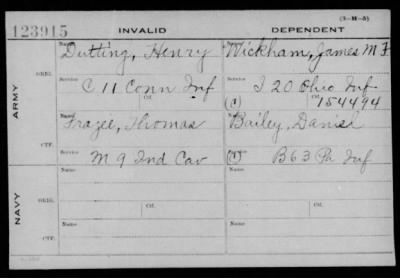 (3—M—5)
123915 INVALID DEPENDENT
ARMY
ORIG.
Name Dutting, Henry Name Wickham, James M F
Service C 11 Conn Inf Service I 20 Ohio Inf
(1) Ctf. 154494
CTF.
Name Frazee, Thomas Name Bailey, Daniel
Service M 9 Ind Cav Service (1) B 63 Pa Inf
NAVY
ORIG.
Name Name
Ctf. Ctf.
CTF.
Name Name